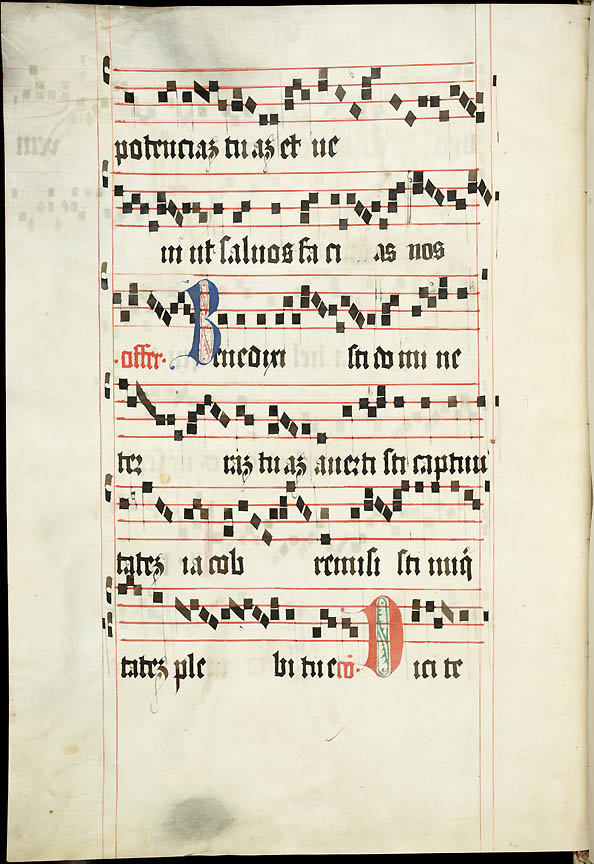 potenciaz tu az et ve
ni ut saluos fa ci as nos
offer. Benedixi sti do mi ne
ter raz tu az auerti sti captiui
tatez ia cob remisi sti iniq̈
tatez ple bi tu e cō. Dici te